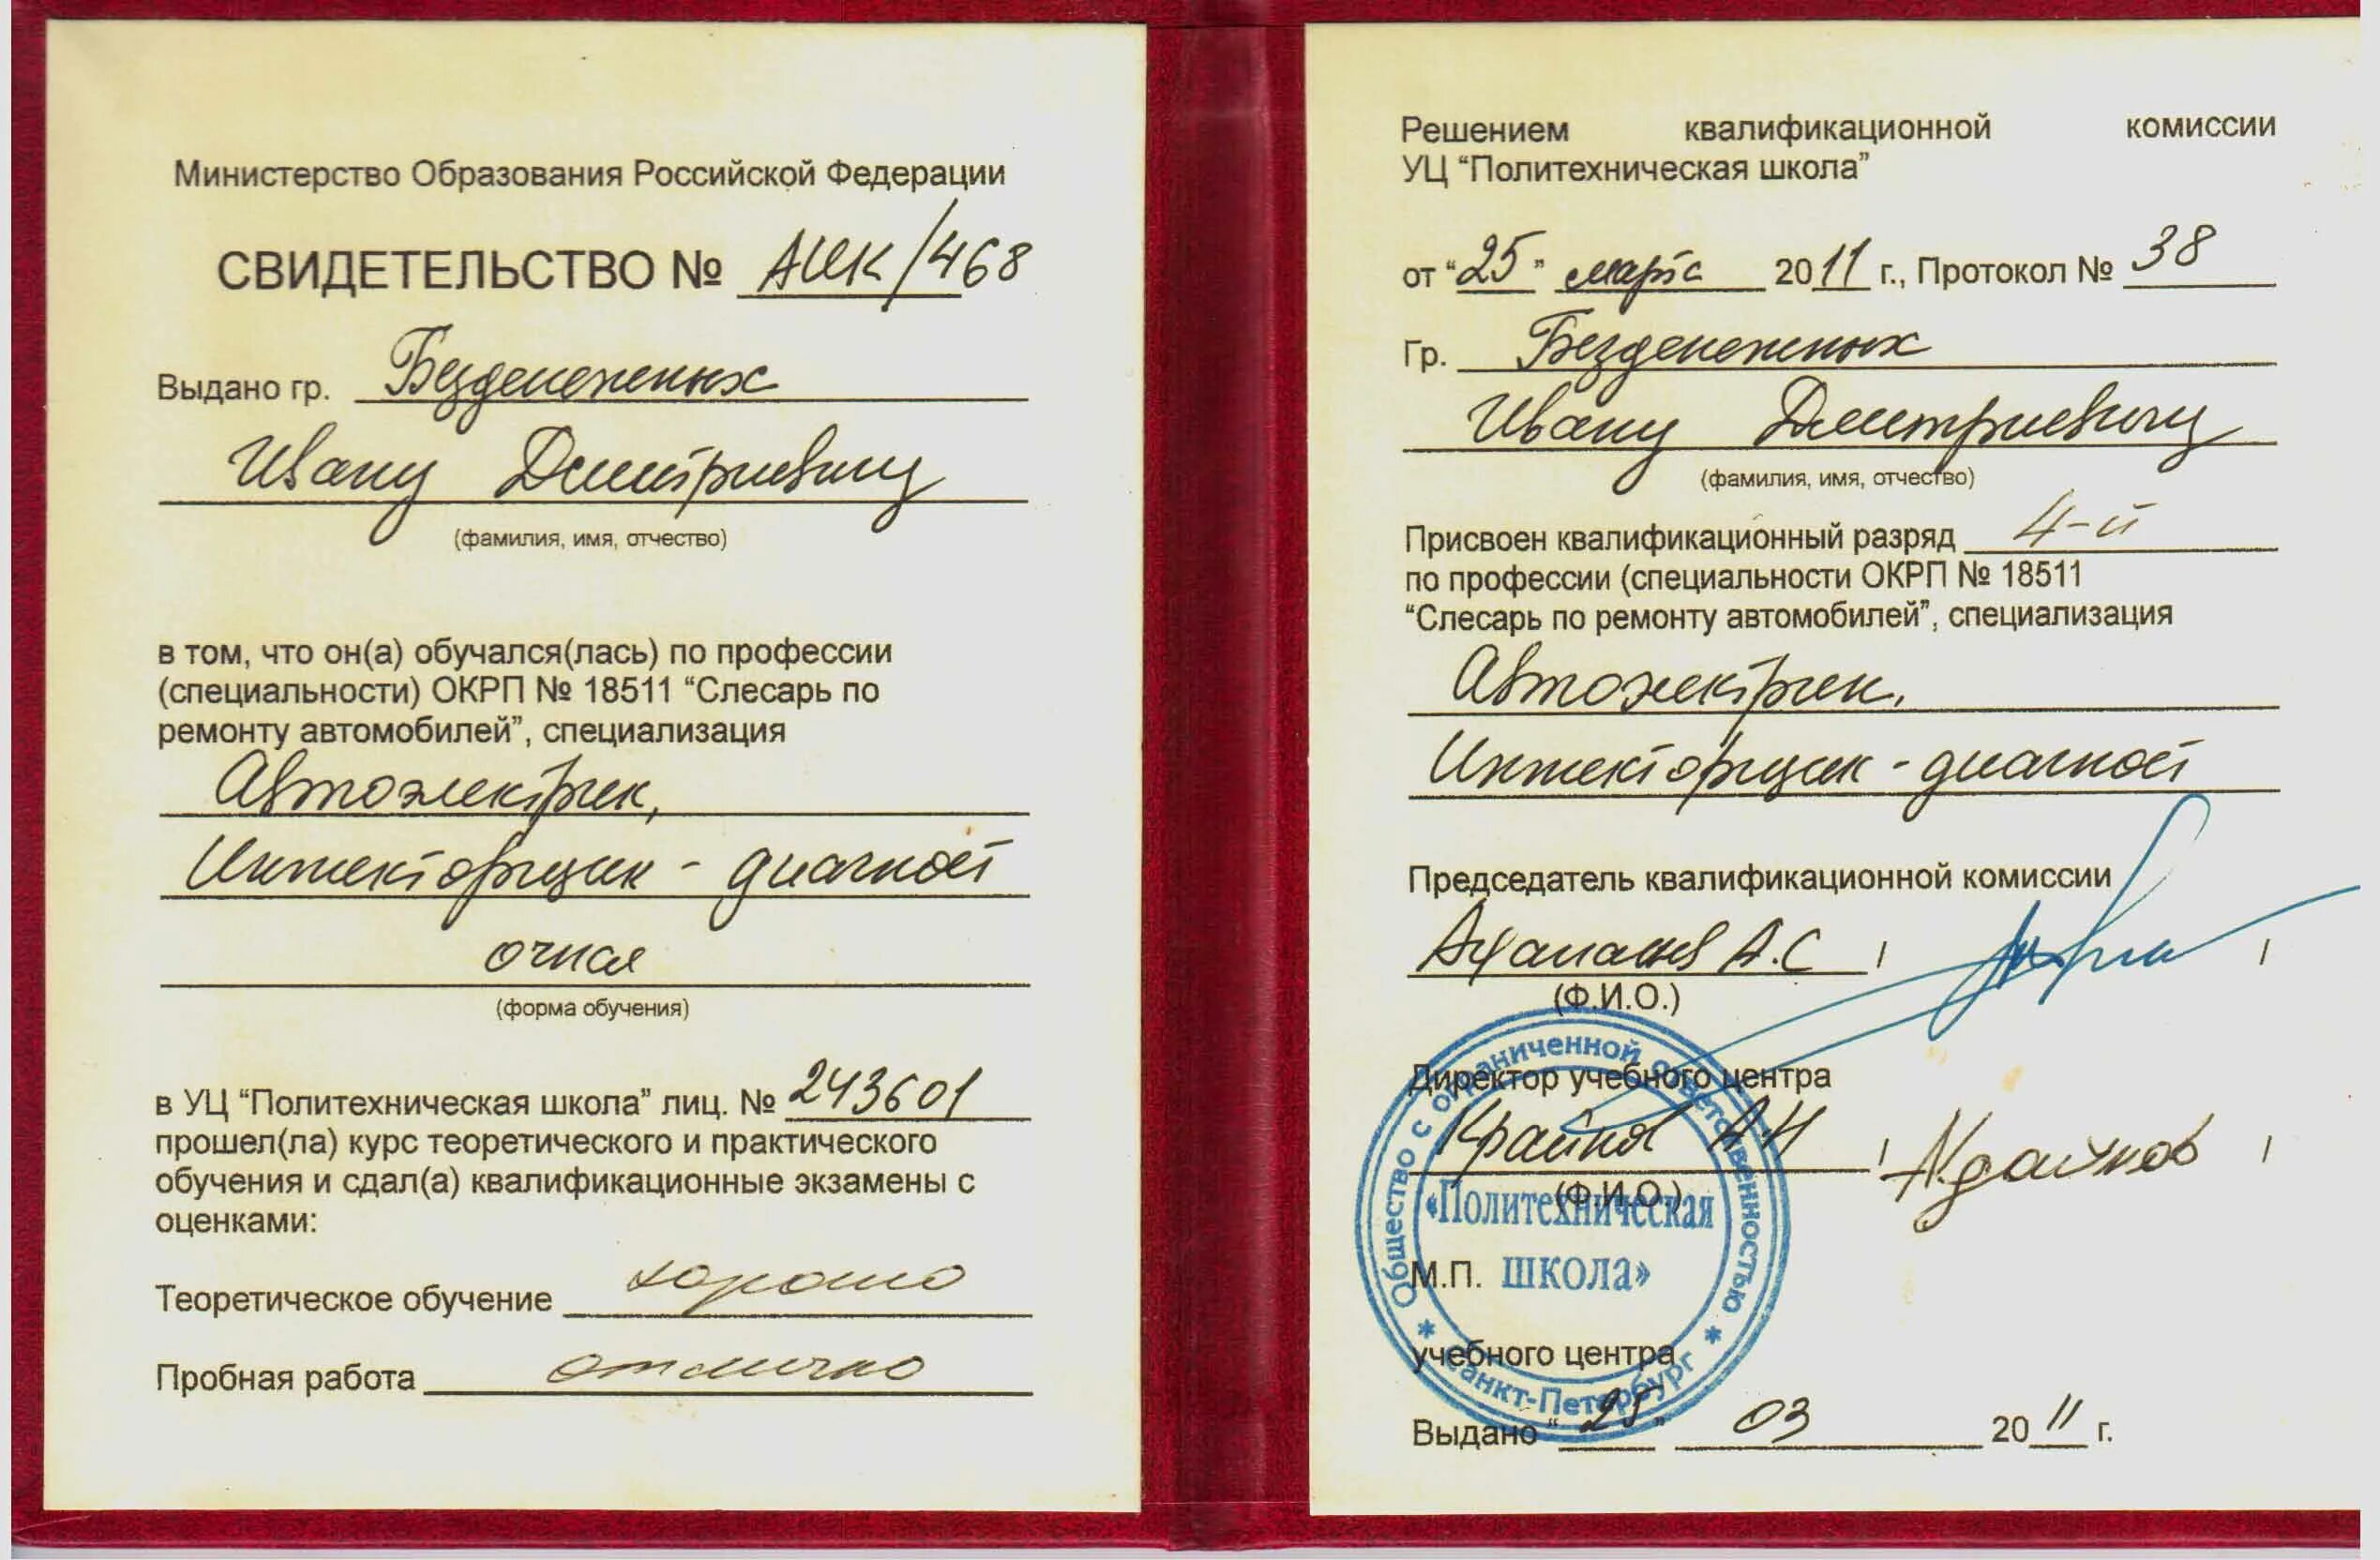 Министерство Образования Российской Федерации
СВИДЕТЕЛЬСТВО № АИК/468
Выдано гр. Безденежных
Ивану Дмитриевичу
(фамилия, имя, отчество)
в том, что он(а) обучался(лась) по профессии
(специальности) ОКРП № 18511 “Слесарь по
ремонту автомобилей”, специализация
Автоэлектрик,
Инжекторщик - диагност
очная
(форма обучения)
в УЦ “Политехническая школа” лиц. № 243601
прошел(ла) курс теоретического и практического
обучения и сдал(а) квалификационные экзамены с
оценками:
Теоретическое обучение хорошо
Пробная работа отлично
Решением квалификационной комиссии
УЦ “Политехническая школа”
от “25” марта 2011 г., Протокол № 38
Гр. Безденежных
Ивану Дмитриевичу
(фамилия, имя, отчество)
Присвоен квалификационный разряд 4-й
по профессии (специальности ОКРП № 18511
“Слесарь по ремонту автомобилей”, специализация
Автоэлектрик,
Инжекторщик - диагност
Председатель квалификационной комиссии
Афанасьев А.С
(Ф.И.О.)
Директор учебного центра
Крайнов А.Н
(Ф.И.О.)
М.П.
учебного центра
Выдано “25” 03 2011 г.
Общество с ограниченной ответственностью
«Политехническая
школа»
* Санкт-Петербург *